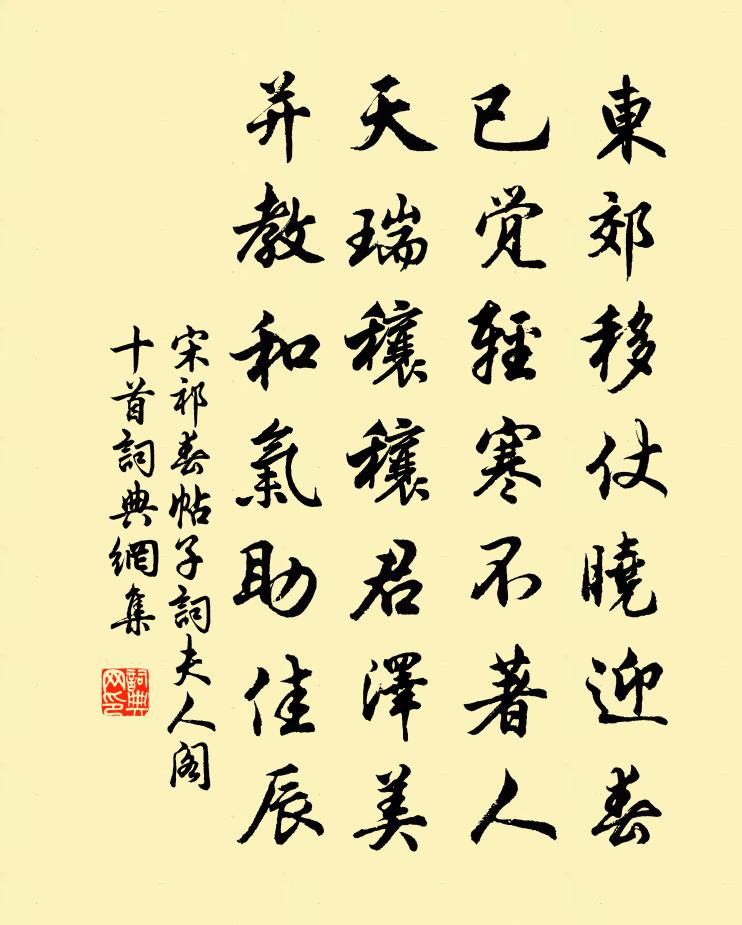 東郊移仗曉迎春
已覚輕寒不著人
天瑞穰穰君澤美
并教和氣助佳辰
宋祁春帖子詞夫人阁
十首詞典網集
詞典网印